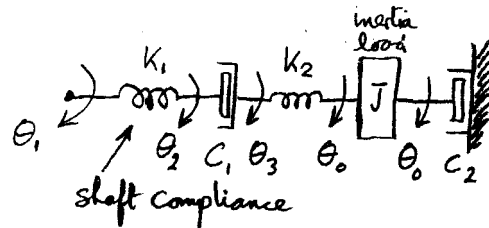 inertia
load
K₁
K₂
J
θ₁
θ₂
C₁
θ₃
θ₀
θ₀
C₂
shaft compliance